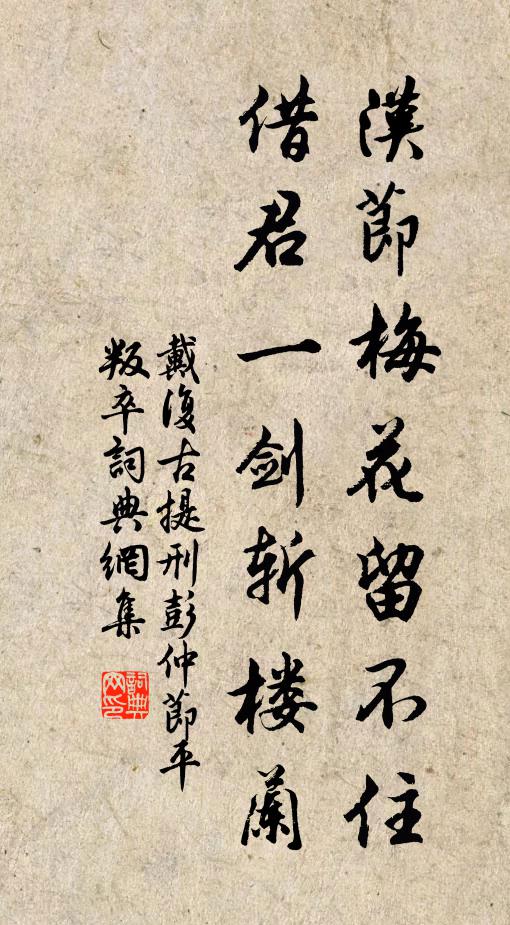 漢節梅花留不住
借君一劍斬樓蘭
戴復古提刑彭仲節平
叛卒詞典網集
詞典
网印